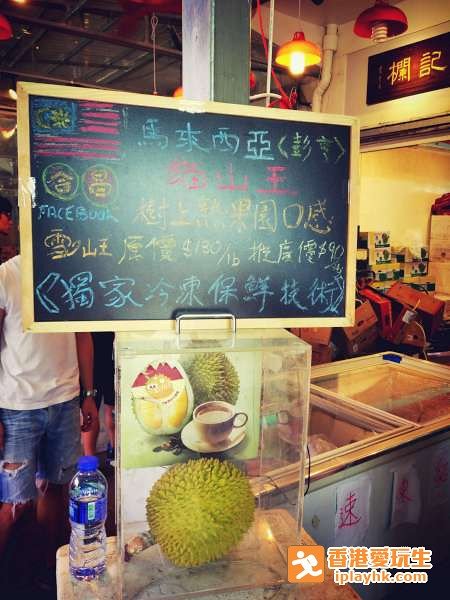 欄記
馬來西亞〈彭亨〉
貓山王
FACEBOOK
樹上熟果園口感
雪山王原價$180/lb 推廣價$90
《獨家冷凍保鮮技術》
速
凍
香港愛玩生
iplayhk.com